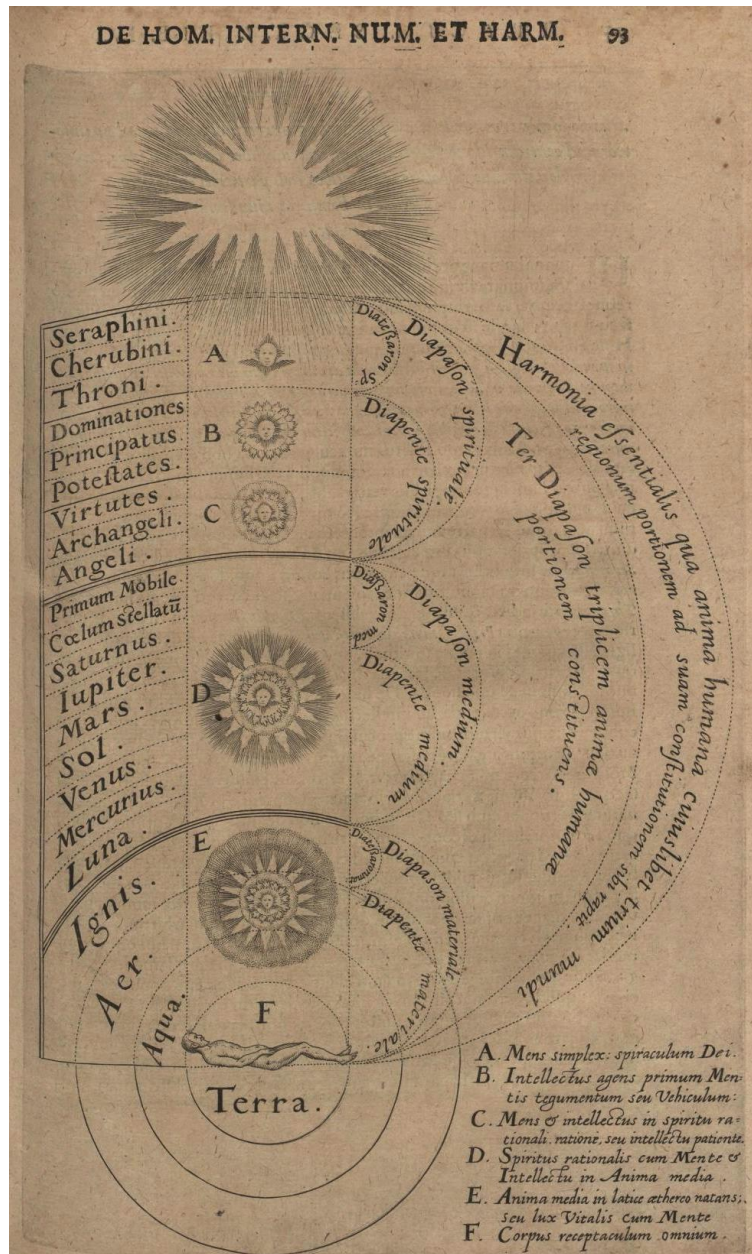 DE HOM. INTERN. NUM. ET HARM. 93
Seraphini.
Cherubini.
Throni.
Dominationes
Principatus
Potestates.
Virtutes.
Archangeli.
Angeli.
Primum Mobile
Cœlum stellatū
Saturnus.
Iupiter.
Mars.
Sol.
Venus.
Mercurius.
Luna.
Ignis.
Aer.
Aqua.
Terra.
A
B
C
D
E
F
Diatessaron sp.
Diapason spirituale.
Diapente spirituale
Diapason medium.
Diapente medium.
Diapason materiale
Diapente materiale.
Ter Diapason triplicem animæ humanæ
portionem constituens.
Harmonia essentialis qua anima humana cuiuslibet trium mundi
regionum portionem ad suam constitutionem sibi rapit.
A. Mens simplex: spiraculum Dei.
B. Intellectus agens primum Men-
tis tegumentum seu Vehiculum:
C. Mens & intellectus in spiritu ra=
tionali. ratione, seu intellectu patiente.
D. Spiritus rationalis cum Mente &
Intellectu in Anima media.
E. Anima media in latice æthereo natans;
seu lux Vitalis cum Mente
F. Corpus receptaculum omnium.